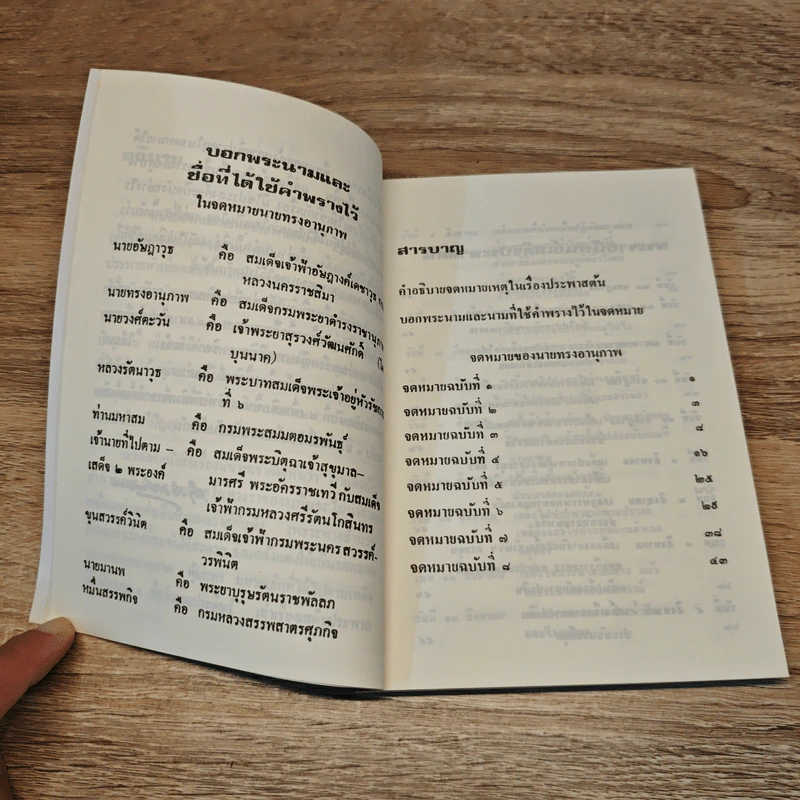 บอกพระนามและ
ชื่อที่ได้ใช้คำพรางไว้
ในจดหมายนายทรงอานุภาพ
นายอัษฎาวุธ คือ สมเด็จเจ้าฟ้าอัษฎางค์เดชาวุธ
หลวงนครราชสีมา
นายทรงอานุภาพ คือ สมเด็จกรมพระยาดำรงราชานุภาพ
นายวงศ์ตะวัน คือ เจ้าพระยาสุรวงศ์วัฒนศักดิ์
บุนนาค)
หลวงรัตนาวุธ คือ พระบาทสมเด็จพระเจ้าอยู่หัวรัชกาล
ที่ ๖
ท่านมหาสม คือ กรมพระสมมตอมรพันธุ์
เจ้านายที่ไปตาม – คือ สมเด็จพระปิตุฉาเจ้าสุขุมาล–
เสด็จ ๒ พระองค์ มารศรี พระอัครราชเทวี กับสมเด็จ
เจ้าฟ้ากรมหลวงศรีรัตนโกสินทร
ขุนสวรรค์วินิต คือ สมเด็จเจ้าฟ้ากรมพระนคร สวรรค์–
วรพินิต
นายมานพ คือ พระยาบุรุษรัตนราชพัลลภ
หมื่นสรรพกิจ คือ กรมหลวงสรรพสาตรศุภกิจ
สารบาญ
คำอธิบายจดหมายเหตุในเรื่องประพาสต้น
บอกพระนามและนามที่ใช้คำพรางไว้ในจดหมาย
จดหมายของนายทรงอานุภาพ
จดหมายฉบับที่ ๑ ๑
จดหมายฉบับที่ ๒ ๓
จดหมายฉบับที่ ๓ ๘
จดหมายฉบับที่ ๔ ๑๖
จดหมายฉบับที่ ๕ ๒๕
จดหมายฉบับที่ ๖ ๒๙
จดหมายฉบับที่ ๗ ๓๘
จดหมายฉบับที่ ๘ ๔๓